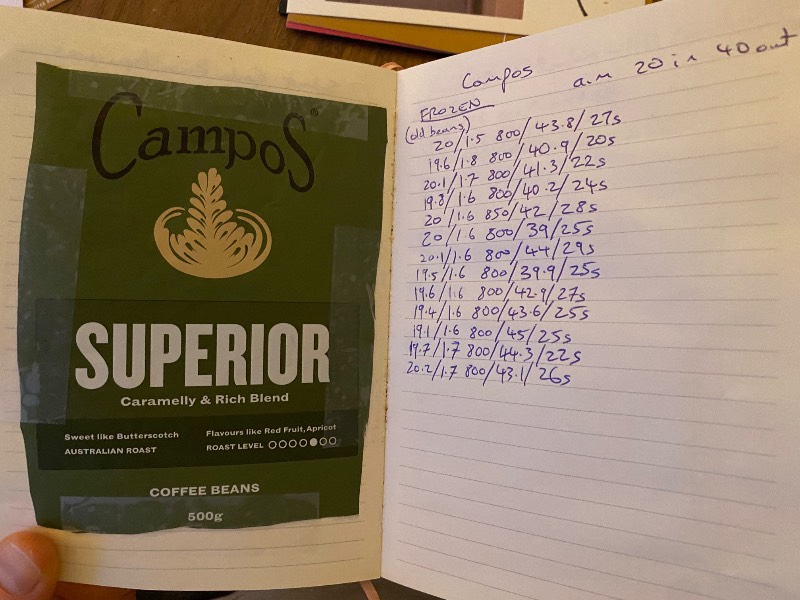 Campos®
SUPERIOR
Caramelly & Rich Blend
Sweet like Butterscotch
AUSTRALIAN ROAST
Flavours like Red Fruit, Apricot
ROAST LEVEL
COFFEE BEANS
500g
Campos
aim 20 in 40 out
FROZEN
(old beans)
20/1.5 800/43.8/27s
19.6/1.8 800/40.9/20s
20.1/1.7 800/41.3/22s
19.8/1.6 800/40.2/24s
20/1.6 850/42/28s
20/1.6 800/39/25s
20.1/1.6 800/44/29s
19.5/1.6 800/39.9/25s
19.6/1.6 800/42.9/27s
19.4/1.6 800/43.6/25s
19.1/1.6 800/45/25s
19.7/1.7 800/44.3/22s
20.2/1.7 800/43.1/26s